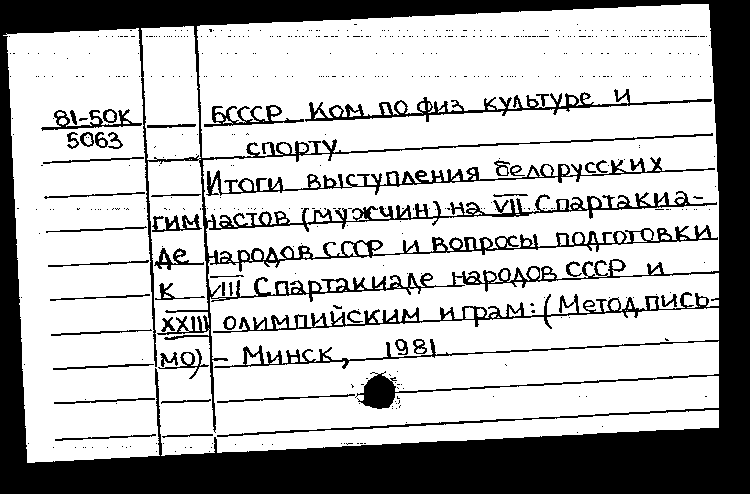 81-50К
5063
БСССР. Ком. по физ культуре и
спорту.
Итоги выступления белорусских
гимнастов (мужчин) на VII Спартакиа-
де народов СССР и вопросы подготовки
к VIII Спартакиаде народов СССР и
XXIII олимпийским играм: (Метод. пись-
мо) - Минск, 1981